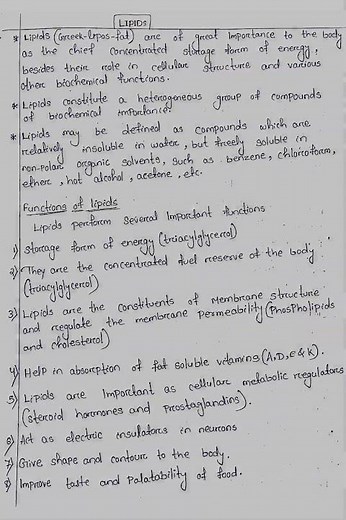 LIPIDS
* Lipids (Greek-lipos-fat) are of great importance to the body
as the chief concentrated storage form of energy,
besides their role in cellular structure and various
other biochemical functions.
* Lipids constitute a heterogeneous group of compounds
of biochemical importance.
* Lipids may be defined as compounds which are
relatively insoluble in water, but freely soluble in
non-polar organic solvents, such as benzene, chloroform,
ether, hot alcohol, acetone, etc.
Functions of lipids
Lipids perform several important functions
1) Storage form of energy (triacylglycerol)
2) They are the concentrated fuel reserve of the body
(triacylglycerol)
3) Lipids are the constituents of Membrane structure
and regulate the membrane permeability (Phospholipids
and cholesterol)
4) Help in absorption of fat soluble vitamins (A,D,E & K).
5) Lipids are Important as cellular metabolic regulators
(steroid hormones and Prostaglandins).
6) Act as electric insulators in neurons
7) Give shape and contour to the body.
8) Improve taste and Palatability of food.